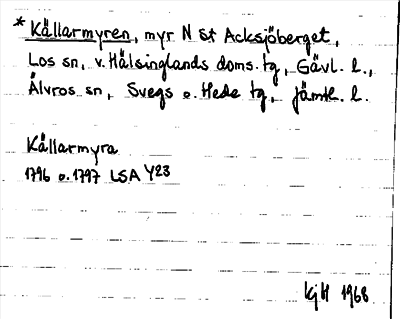 * Källarmyren, myr N åt Acksjöberget,
Los sn, v. Hälsinglands doms. tg, Gävl. l.,
Älvros sn, Svegs o. Hede tg, Jämtl. l.
Källarmyra
1796 o. 1797 LSA Y23
KjH 1968